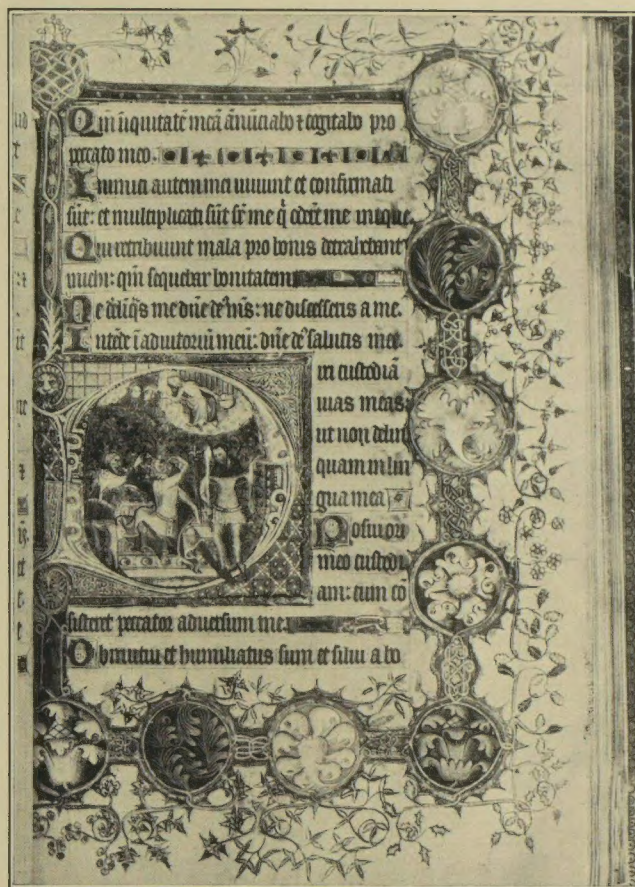 Qm̄ iiquitatē meā ānūciabo ⁊ cogitabo pro
peccato meo.
Inimici autem mei uiuunt et confirmati
sūt: et multiplicati sūt sr̄ me q̄ oderūt me inique.
Qui retribuunt mala pro bonis detrahebant
michi: qm̄ sequebar bonitatem
Ne delīq̄s me dn̄e de᷒ m̄s: ne discesseris a me.
Intēde ī adiutoriū meū: dn̄e de᷒ salutis mee.
ixi custodiā
uias meas
ut non delin
quam in lin
gua mea
Posui ori
meo custodi
am: cum cō
sisteret peccator aduersum me.
Obmutui et humiliatus sum et silui a bo